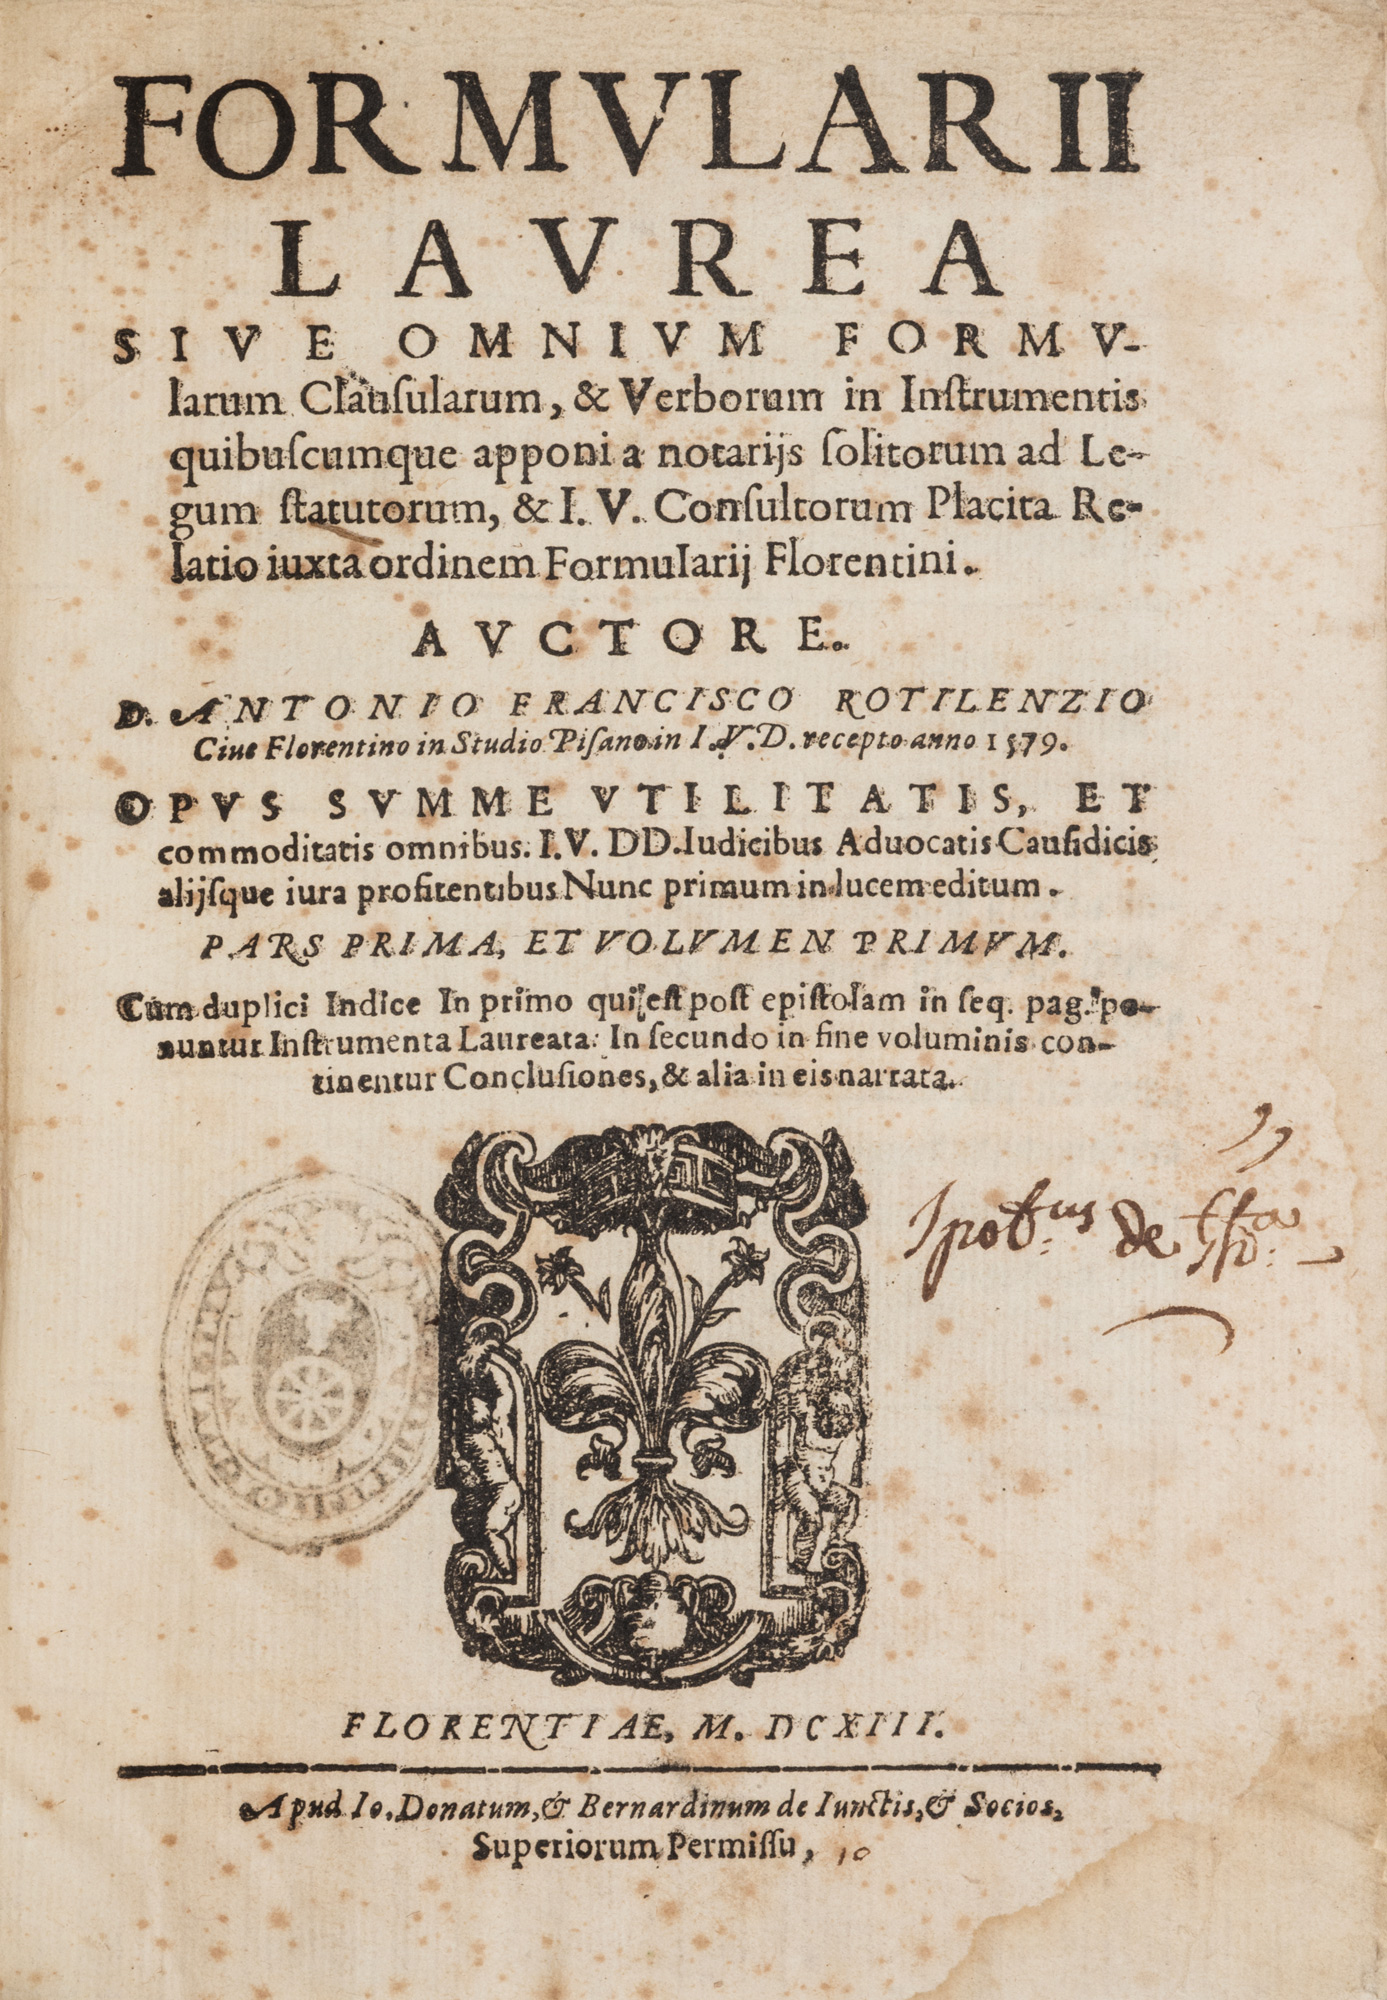 FORMVLARII
LAVREA
SIVE OMNIVM FORMV-
larum Clauſularum, & Verborum in Inſtrumentis
quibuſcumque apponi a notarijs ſolitorum ad Le-
gum ſtatutorum, & I. V. Conſultorum Placita Re-
latio iuxta ordinem Formularij Florentini.
AVCTORE.
D. ANTONIO FRANCISCO ROTILENZIO
Ciue Florentino in Studio Piſano in I.V.D. recepto anno 1579.
OPVS SVMME VTILITATIS, ET
commoditatis omnibus. I.V. DD. Iudicibus Aduocatis Cauſidicis
alijſque iura profitentibus Nunc primum in lucem editum.
PARS PRIMA, ET VOLVMEN PRIMVM.
Cum duplici Indice In primo qui eſt poſt epiſtolam in ſeq. pag. po-
nuntur Inſtrumenta Laureata: In ſecundo in fine voluminis con-
tinentur Concluſiones, & alia in eis narrata.
de
FLORENTIAE, M. DCXIII.
Apud Io. Donatum, & Bernardinum de Iunctis, & Socios,
Superiorum Permiſſu, 10